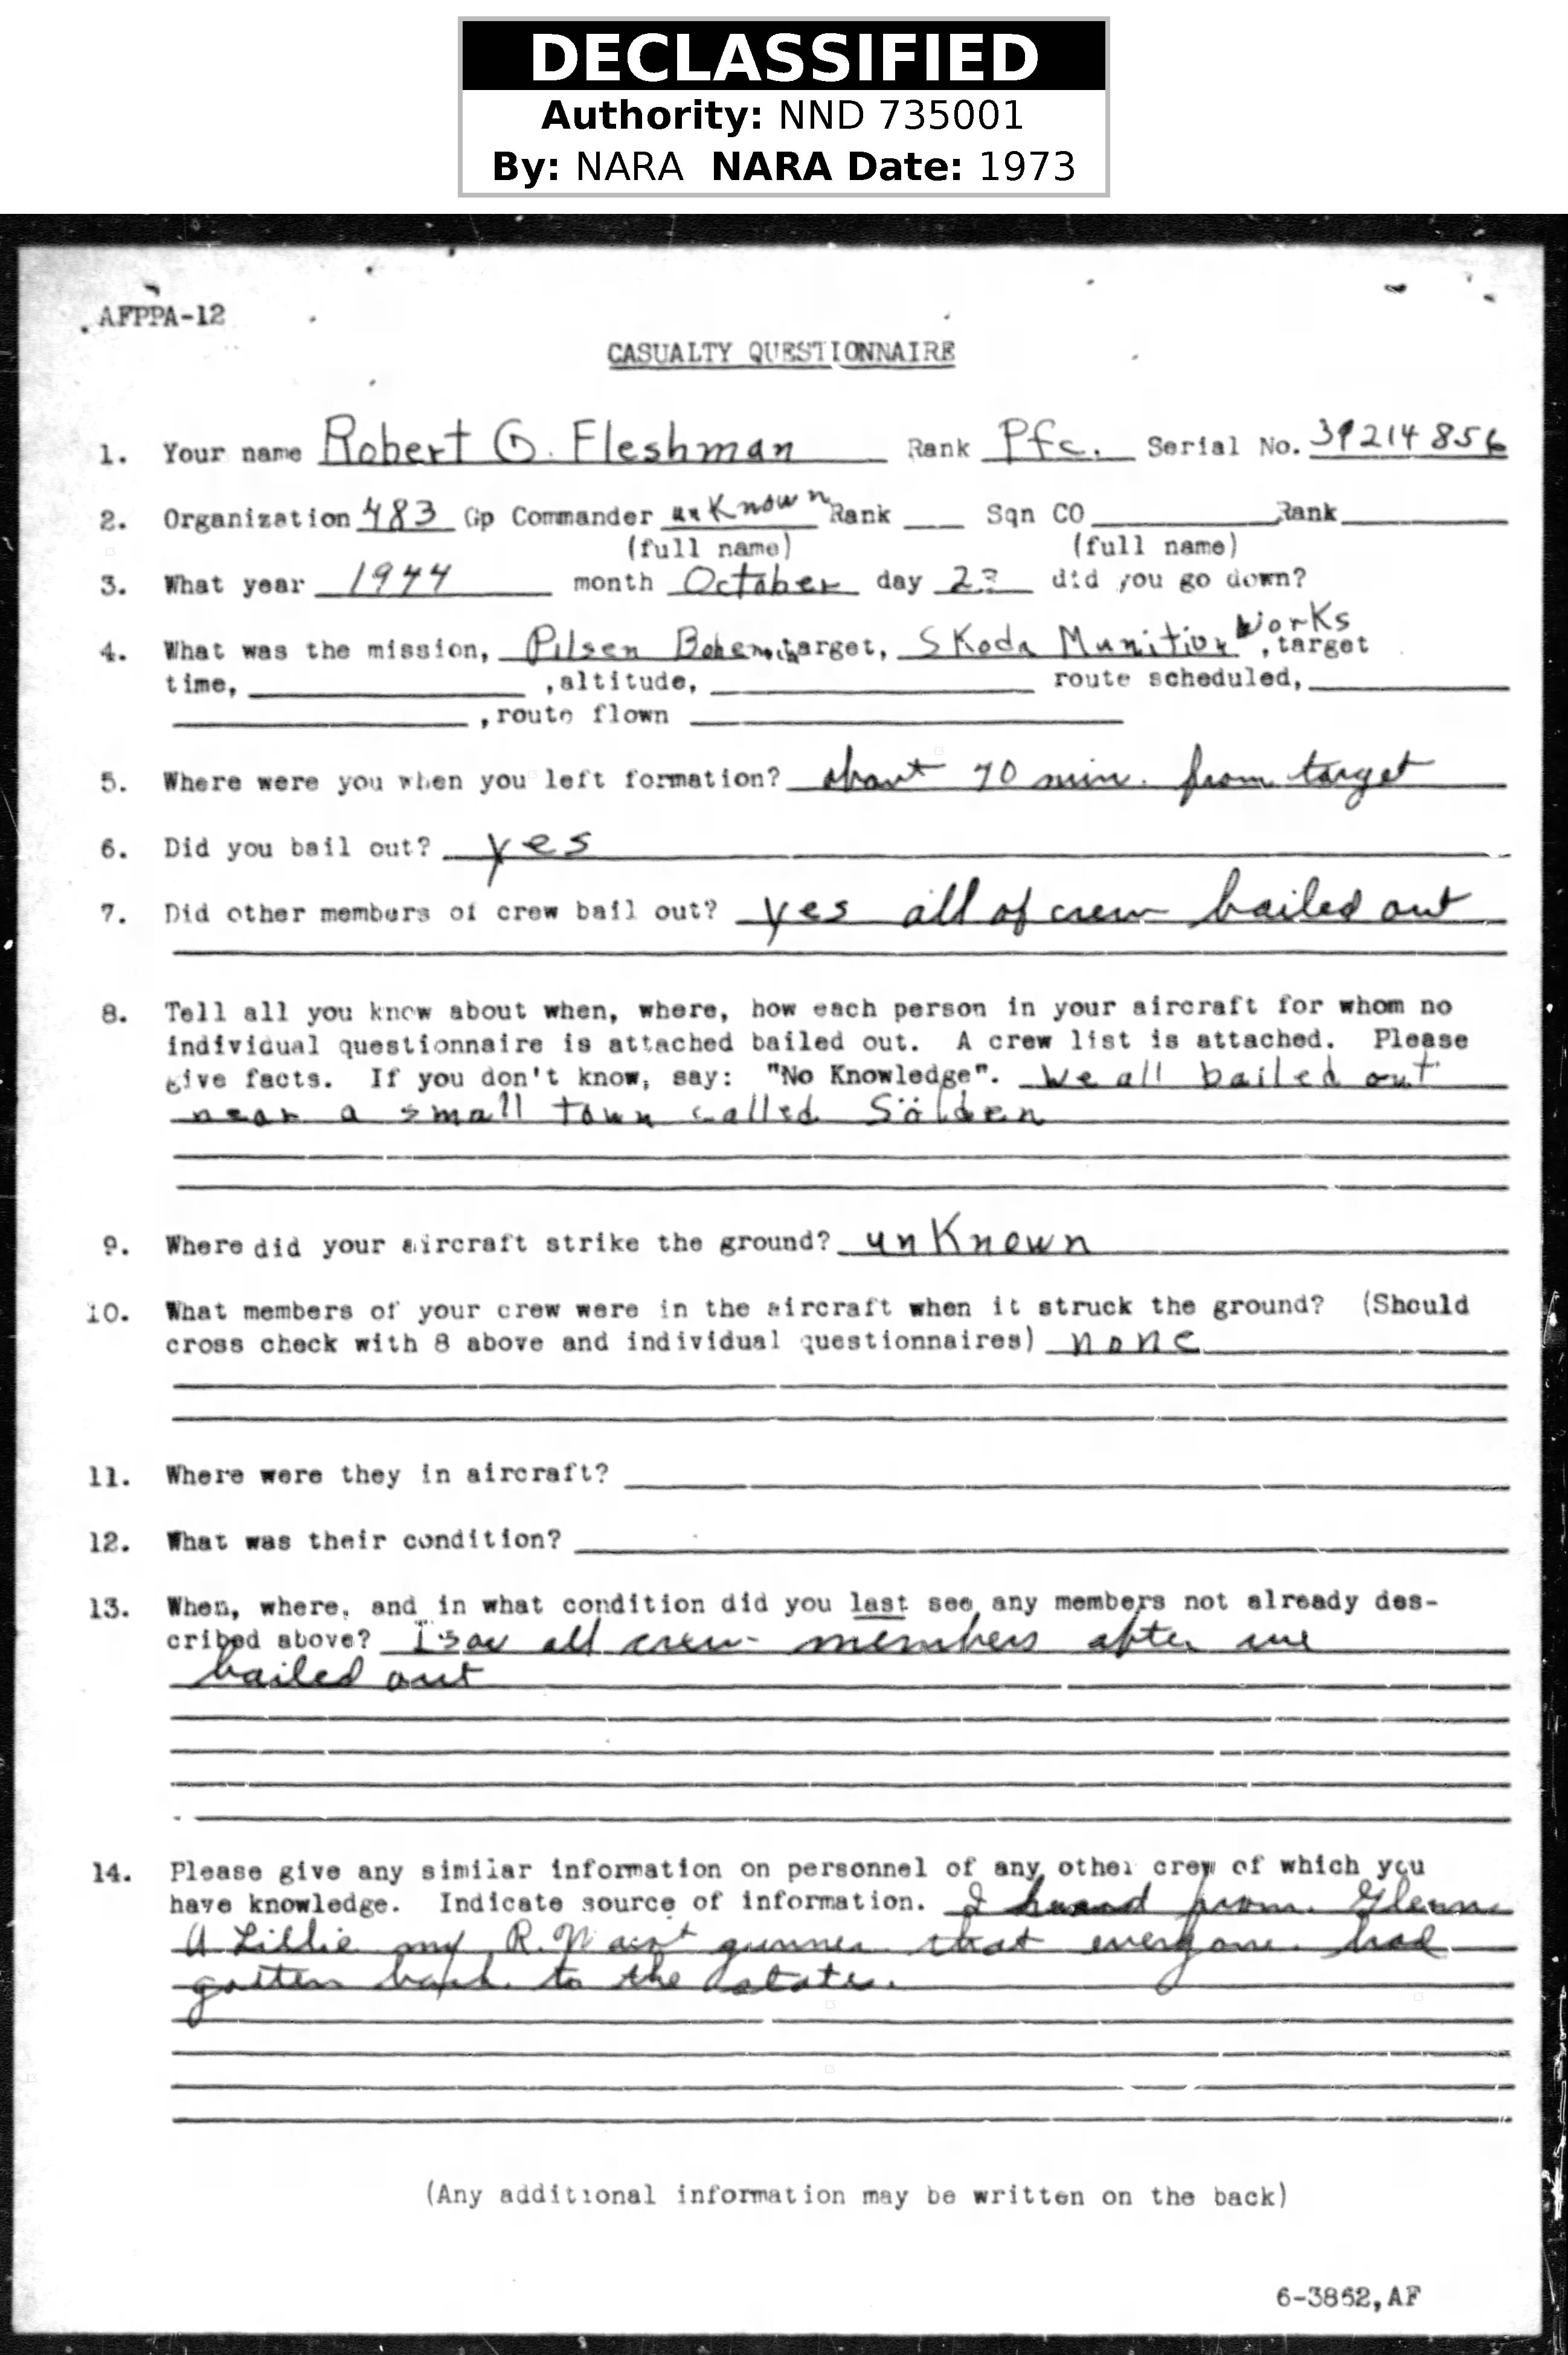 DECLASSIFIED
Authority: NND 735001
By: NARA NARA Date: 1973
AFPPA-12
CASUALTY QUESTIONNAIRE
1. Your name Robert G. Fleshman Rank Pfc. Serial No. 39214856
2. Organization 483 Gp Commander unKnown Rank ___ Sqn CO ___ Rank ___
(full name) (full name)
3. What year 1944 month October day 23 did you go down?
4. What was the mission, Pilsen target, Skoda Munition Works, target
time, ___ ,altitude, ___ route scheduled, ___
___ ,route flown ___
5. Where were you when you left formation? about 70 min. from target
6. Did you bail out? yes
7. Did other members of crew bail out? yes all of crew bailed out
8. Tell all you know about when, where, how each person in your aircraft for whom no
individual questionnaire is attached bailed out. A crew list is attached. Please
give facts. If you don't know, say: "No Knowledge". We all bailed out
near a small town called Sölden
9. Where did your aircraft strike the ground? unKnown
10. What members of your crew were in the aircraft when it struck the ground? (Should
cross check with 8 above and individual questionnaires) none
11. Where were they in aircraft?
12. What was their condition?
13. When, where, and in what condition did you last see any members not already des-
cribed above? I saw all crew members after we
bailed out
14. Please give any similar information on personnel of any other crew of which you
have knowledge. Indicate source of information. I heard from Glenn
A Lillie my R. Waist gunner that everyone had
gotten back to the states.
(Any additional information may be written on the back)
6-3862,AF